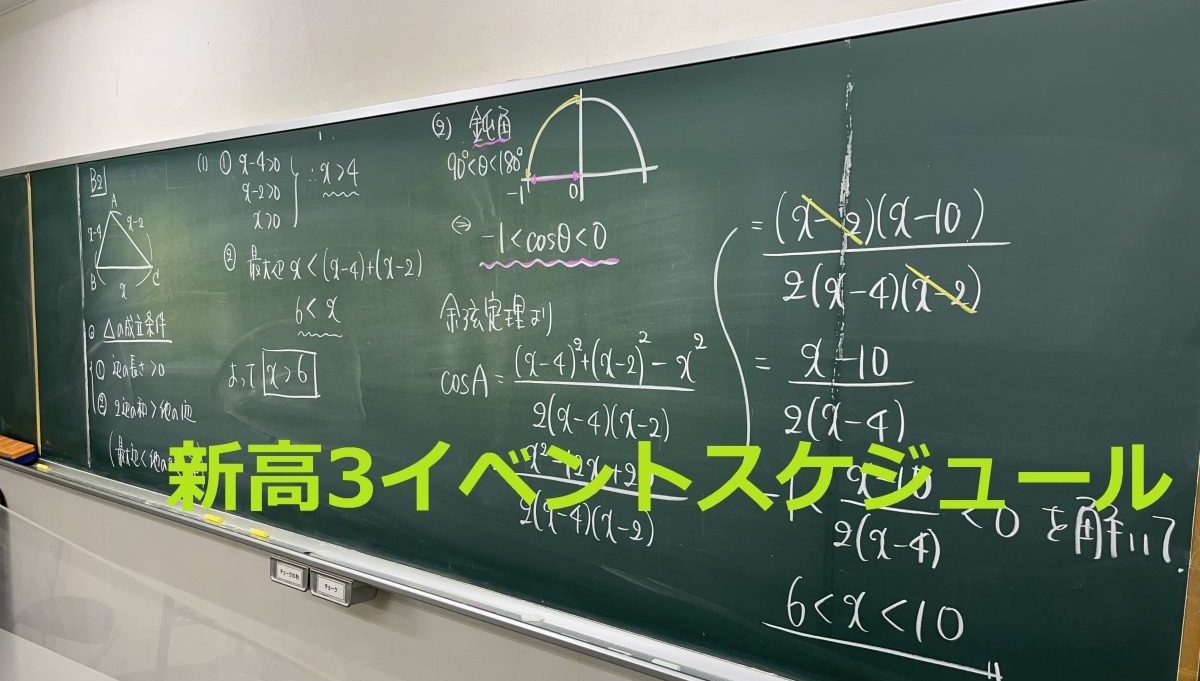 B2
A
x-4
x-2
B
x
C
◎ △の成立条件
① 辺の長さ>0
② 2辺の和>他の辺
(1) ① x-4>0
x-2>0
x>0
∴x>4
② 最大辺 x<(x-4)+(x-2)
6<x
よって x>6
(2) 鈍角
90°<θ<180°
-1
0
⇔ -1<cosθ<0
余弦定理より
cosA = \frac{(x-4)^2+(x-2)^2-x^2}{2(x-4)(x-2)}
2(x-4)(x-2)
= \frac{(x-2)(x-10)}{2(x-4)(x-2)}
= \frac{x-10}{2(x-4)}
\frac{x-10}{2(x-4)} <0 を解いて.
6<x<10
新高3イベントスケジュール
チョーク